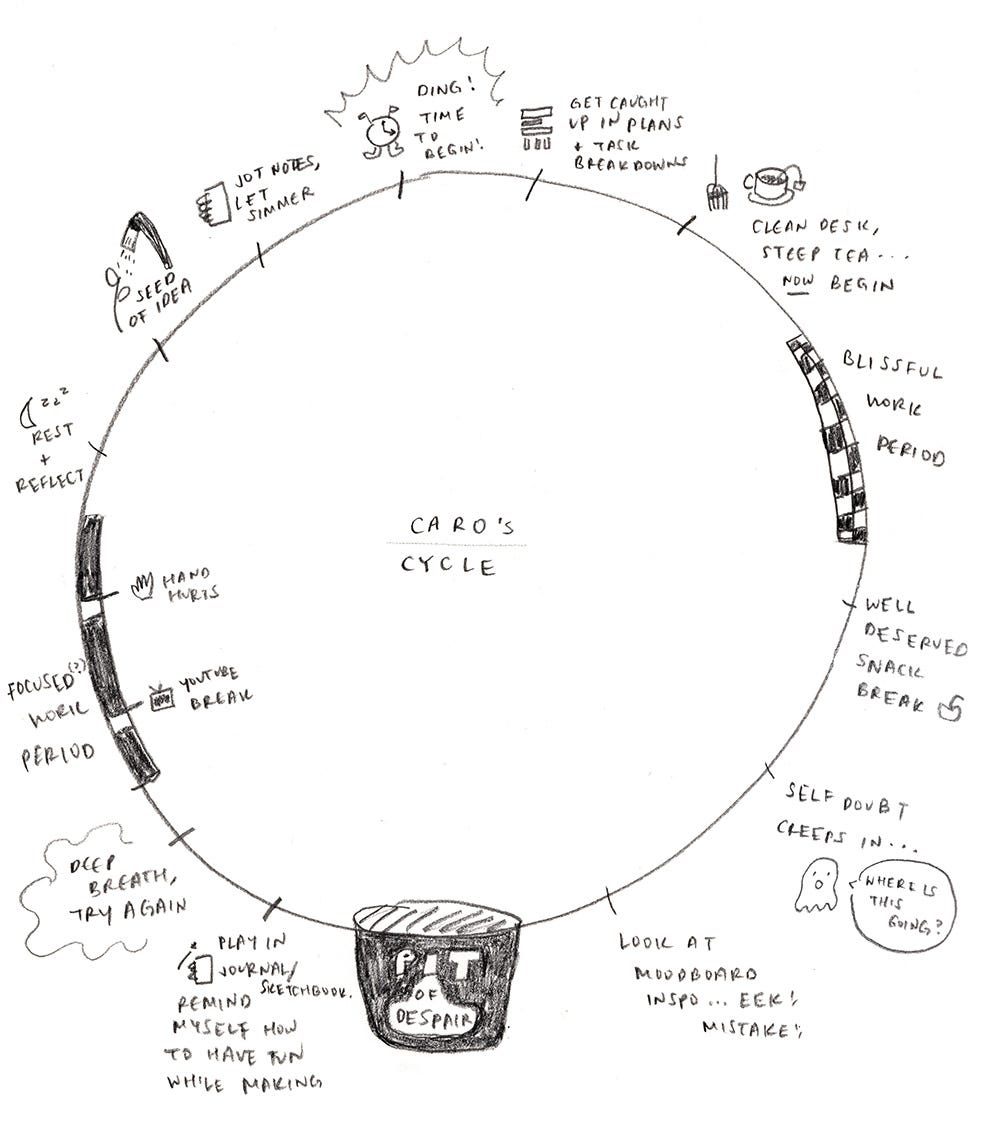 DING!
TIME
TO
BEGIN!
GET CAUGHT
UP IN PLANS
+ TASK
BREAKDOWNS
CLEAN DESK,
STEEP TEA...
NOW BEGIN
BLISSFUL
WORK
PERIOD
WELL
DESERVED
SNACK
BREAK
SELF DOUBT
CREEPS IN...
WHERE IS
THIS
GOING?
LOOK AT
MOODBOARD
INSPO... EEK!
MISTAKE!
PIT
OF
DESPAIR
PLAY IN
JOURNAL/
SKETCHBOOK.
REMIND
MYSELF HOW
TO HAVE FUN
WHILE MAKING
DEEP
BREATH,
TRY AGAIN
FOCUSED(?)
WORK
PERIOD
YOUTUBE
BREAK
HAND
HURTS
REST
+
REFLECT
zzz
SEED
OF IDEA
JOT NOTES,
LET
SIMMER
CARO'S
CYCLE